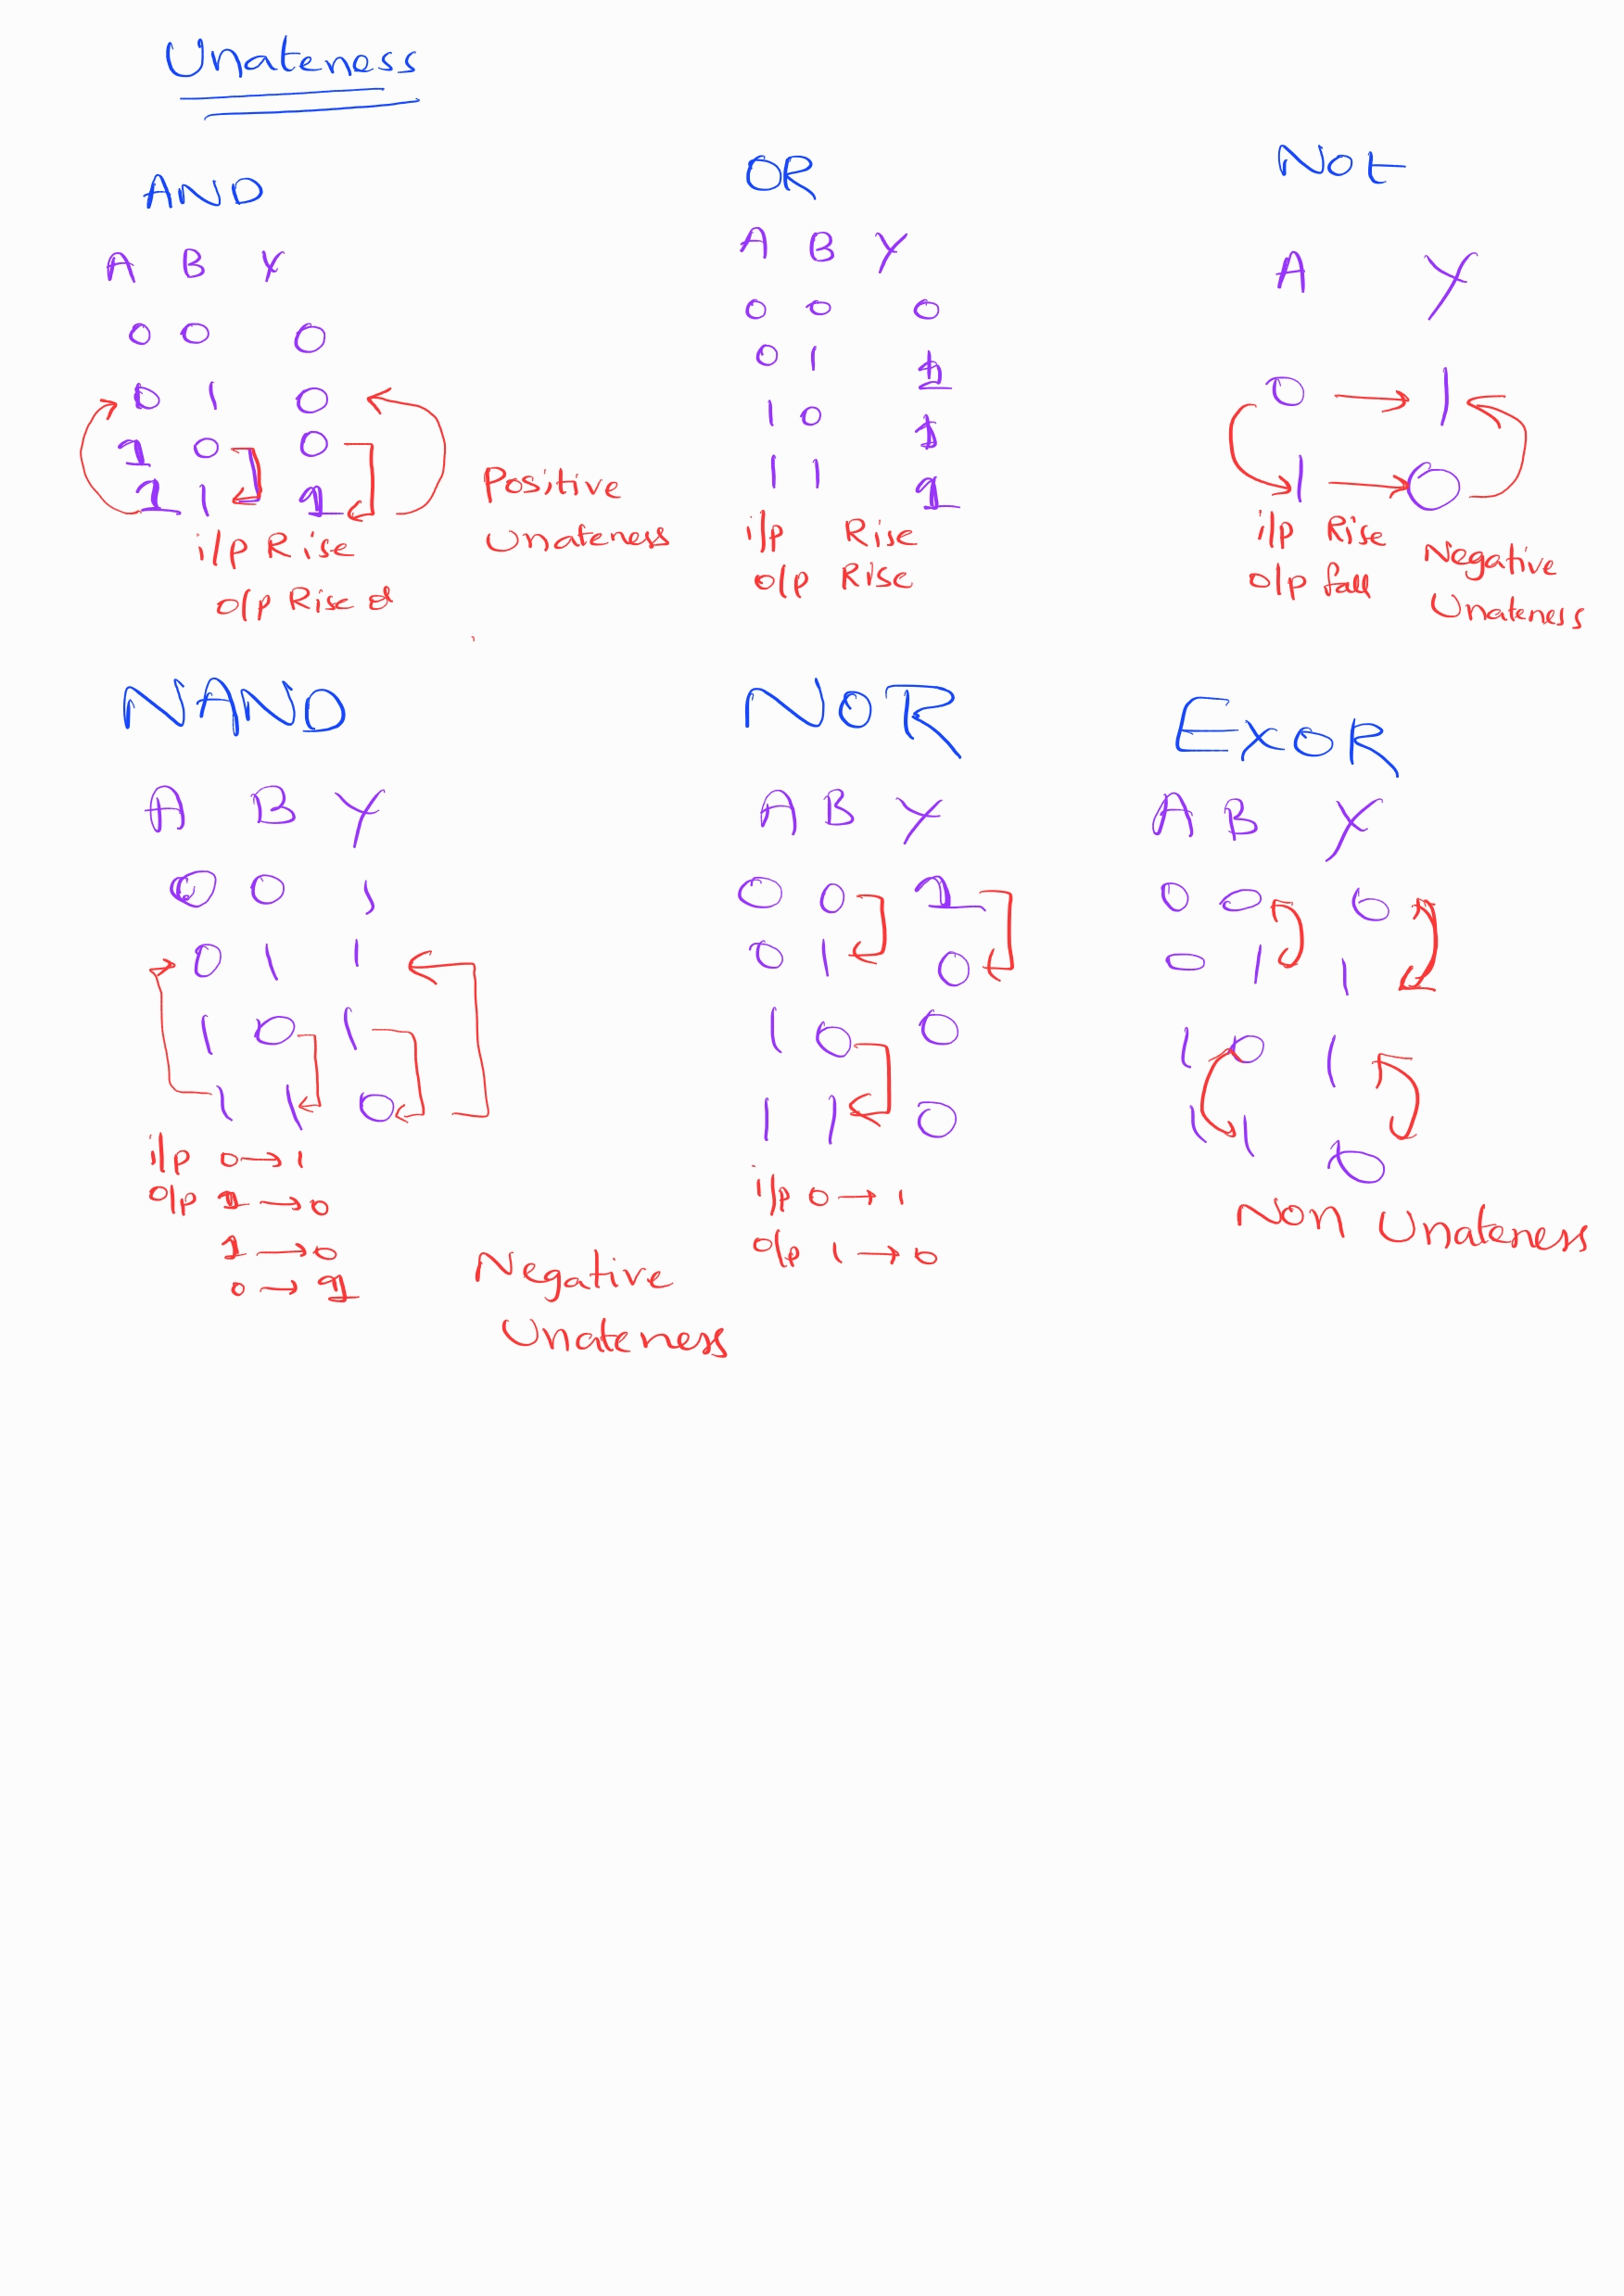 Unateness
AND
A B Y
0 0 0
0 1 0
1 0 0
1 1 1
i/p Rise
o/p Rise
Positive
Unateness
OR
A B Y
0 0 0
0 1 1
1 0 1
1 1 1
i/p Rise
o/p Rise
Not
A Y
0 → 1
1 → 0
i/p Rise
o/p fall
Negative
Unateness
NAND
A B Y
0 0 1
0 1 1
1 0 1
1 1 0
i/p 0 → 1
o/p 1 → 0
1 → 0
0 → 1
Negative
Unateness
NOR
A B Y
0 0 1
0 1 0
1 0 0
1 1 0
i/p 0 → 1
o/p 1 → 0
ExOR
A B Y
0 0 0
0 1 1
1 0 1
1 1 0
Non Unateness